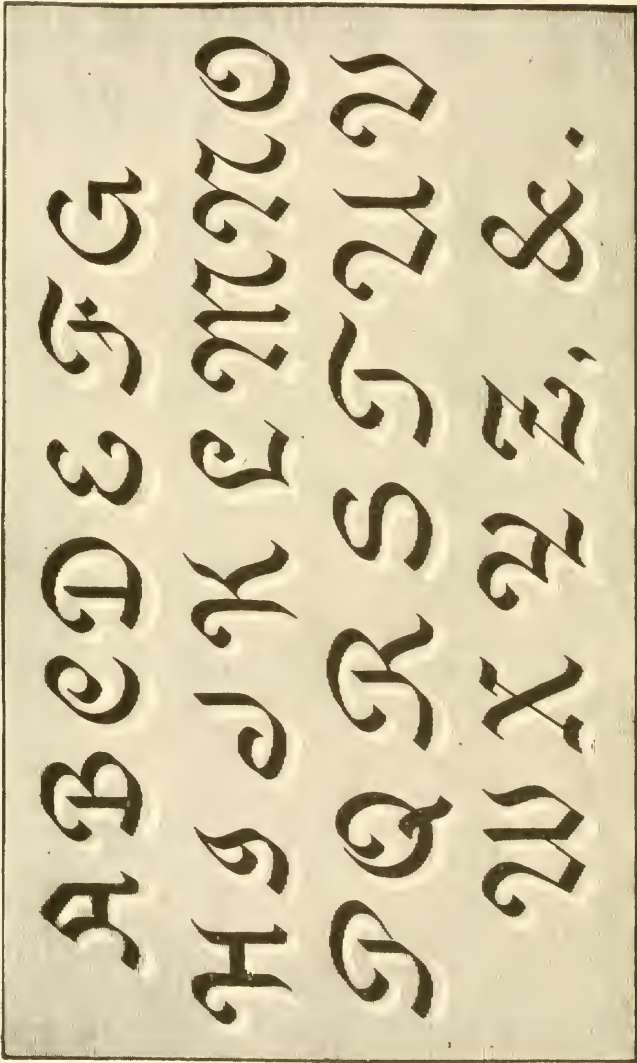 A B C D E F G
H I J K L M N O
P Q R S T U V
W X Y Z, &.